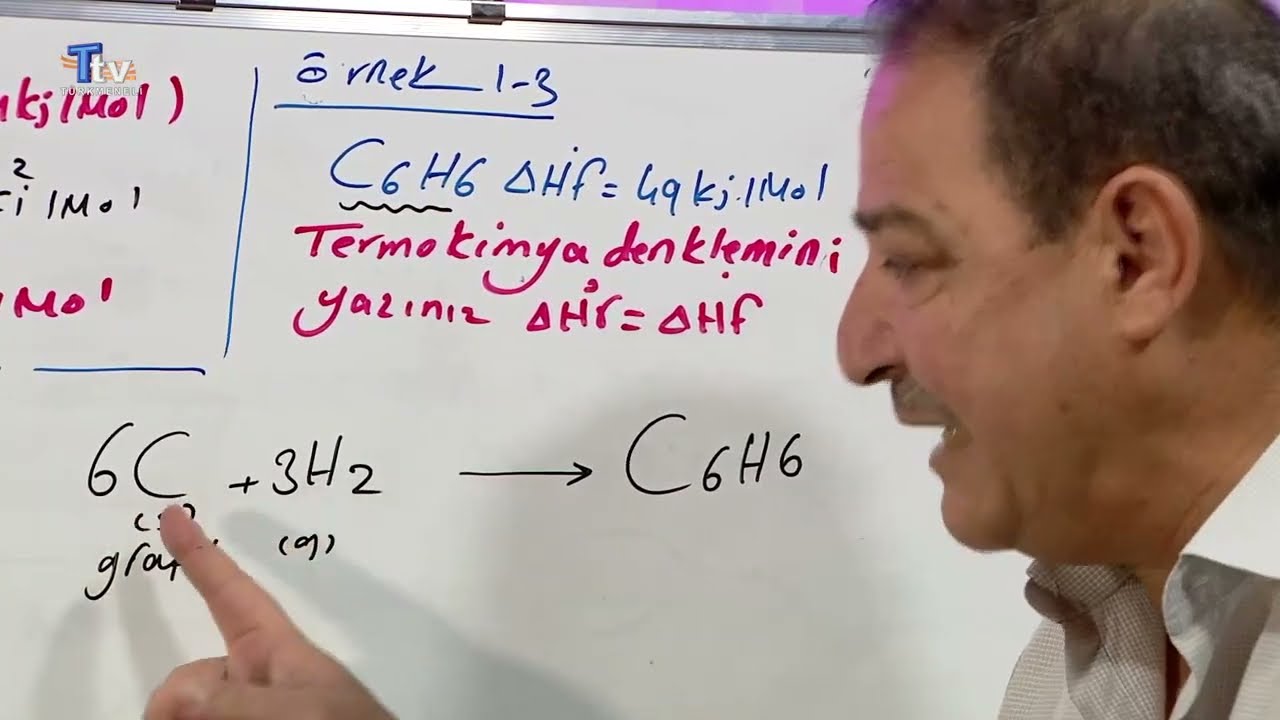 Ttv
TÜRKMENELİ
kj/Mol)
2
/Mol
Mol
Örnek 1-3
C6H6 ΔH°f = 49kj/Mol
Termokimya denklemini
yazınız ΔH°r = ΔH°f
6C + 3H2 → C6H6
(g)